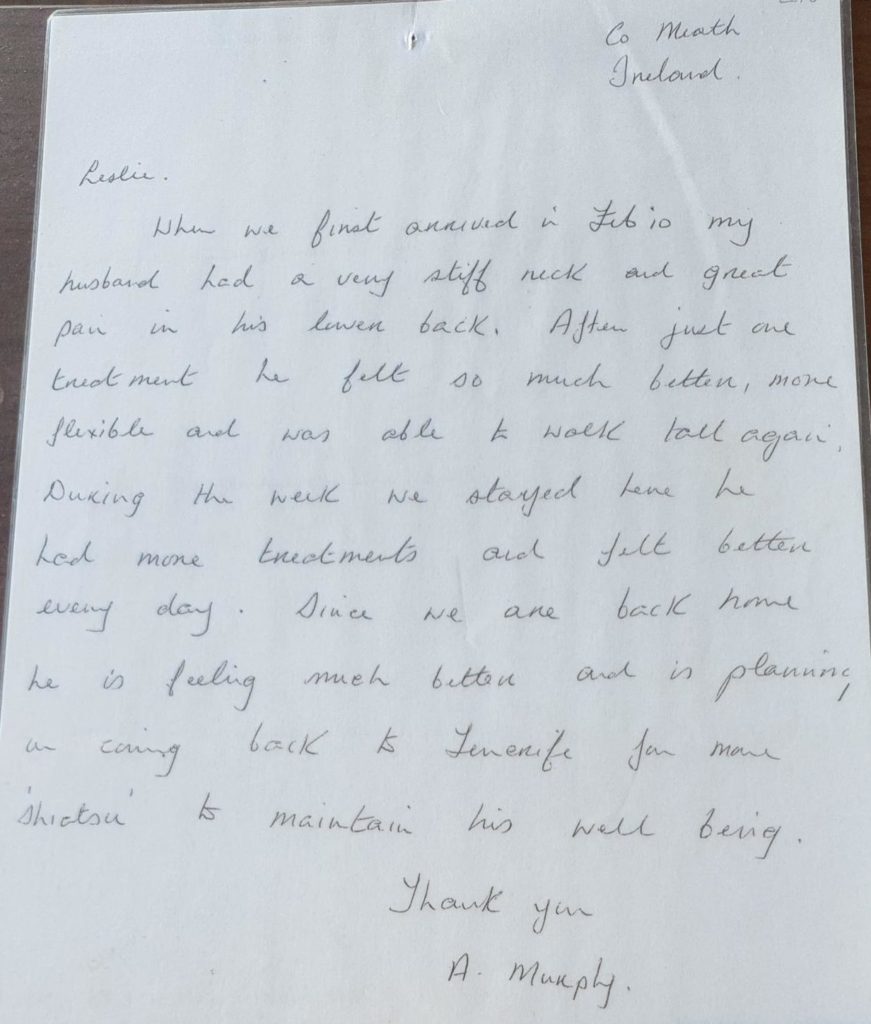 Co Meath
Ireland.
Leslie.
When we first arrived in Feb 10 my
husband had a very stiff neck and great
pain in his lower back. After just one
treatment he felt so much better, more
flexible and was able to walk tall again.
During the week we stayed here he
had more treatments and felt better
every day. Since we are back home
he is feeling much better and is planning
on coming back to Tenerife for more
'Shiatsu' to maintain his well being.
Thank you
A. Murphy.